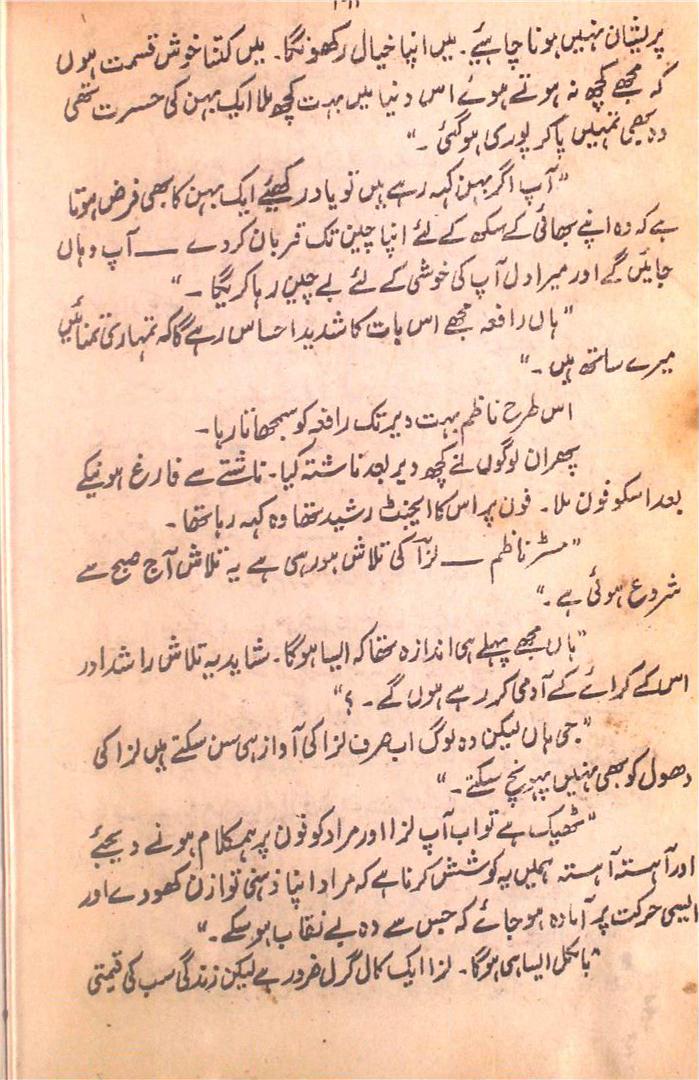 پریشان نہیں ہونا چاہیئے۔ میں اپنا خیال رکھونگا۔ میں کتنا خوش قسمت ہوں
کہ مجھے کچھ نہ ہوتے ہوئے اس دنیا میں بہت کچھ ملا ایک بہن کی حسرت تھی
وہ بھی تمہیں پا کر پوری ہو گئی۔"
"آپ اگر بہن کہہ رہے ہیں تو یاد رکھیئے ایک بہن کا بھی فرض ہوتا
ہے کہ وہ اپنے بھائی کے سکھ کے لئے اپنا چین تک قربان کر دے — آپ وہاں
جائیں گے اور میرا دل آپ کی خوشی کے لئے بے چین رہا کریگا۔"
"ہاں رافعہ مجھے اس بات کا شدید احساس رہے گا کہ تمہاری تمنائیں
میرے ساتھ ہیں۔"
اس طرح ناظم بہت دیر تک رافعہ کو سمجھاتا رہا۔
پھر ان لوگوں نے کچھ دیر بعد ناشتہ کیا۔ ناشتے سے فارغ ہونیکے
بعد اسکو فون ملا۔ فون پر اس کا ایجنٹ رشید تھا وہ کہہ رہا تھا۔
"مسٹر ناظم — لزا کی تلاش ہو رہی ہے یہ تلاش آج صبح سے
شروع ہوئی ہے۔"
"ہاں مجھے پہلے ہی اندازہ تھا کہ ایسا ہوگا۔ شاید یہ تلاش راشد اور
اس کے کرائے کے آدمی کر رہے ہوں گے۔؟"
"جی ہاں لیکن وہ لوگ اب صرف لزا کی آواز ہی سن سکتے ہیں لزا کی
دھول کو بھی نہیں پہونچ سکتے۔"
"ٹھیک ہے تو اب آپ لزا اور مراد کو فون پر ہمکلام ہونے دیجئے
اور آہستہ آہستہ ہمیں یہ کوشش کرنا ہے کہ مراد اپنا ذہنی توازن کھو دے اور
ایسی حرکت پر آمادہ ہو جائے کہ جس سے وہ بے نقاب ہو سکے۔"
"بالکل ایسا ہی ہوگا۔ لزا ایک کال گرل ضرور ہے لیکن زندگی سب کی قیمتی